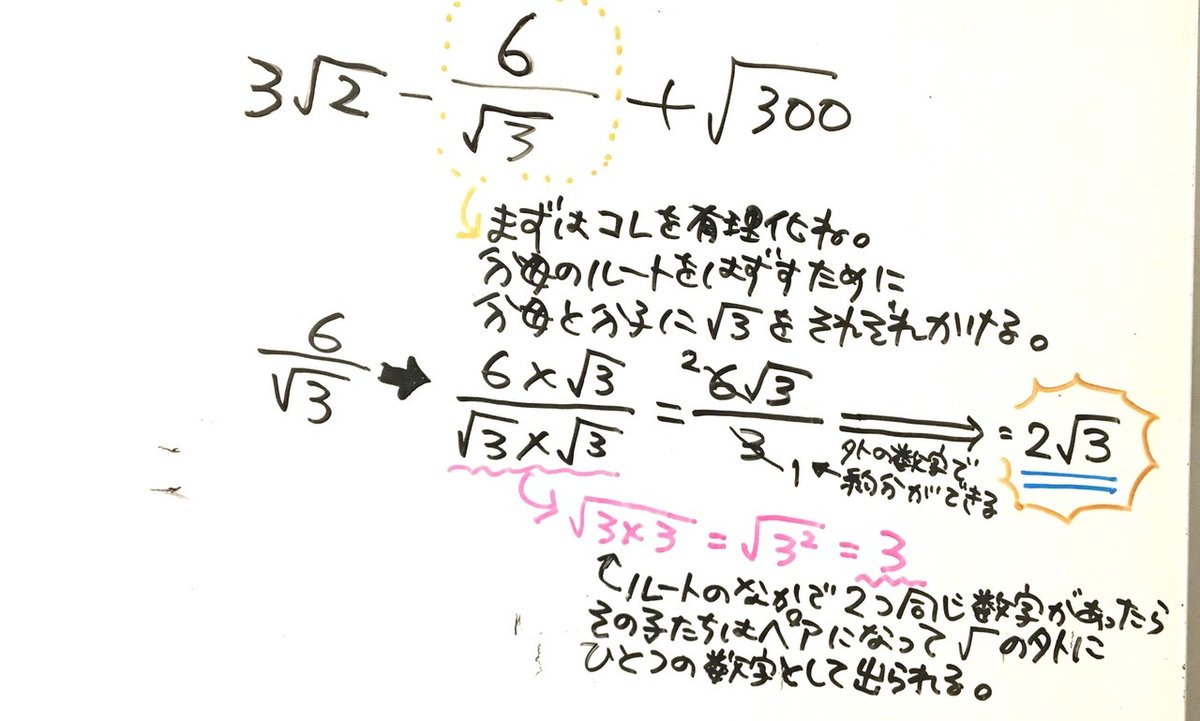 3√2 − 6/√3 + √300
まずはコレを有理化ね。
分母のルートをはずすために
分母と分子に√3をそれぞれかける。
6/√3 → (6×√3)/(√3×√3) = 6√3/3 = 2√3
2
1 ← 外の数字で
約分ができる
√3×3 = √3² = 3
ルートのなかで2つ同じ数字があったら
その子たちはペアになって√の外に
ひとつの数字として出られる。